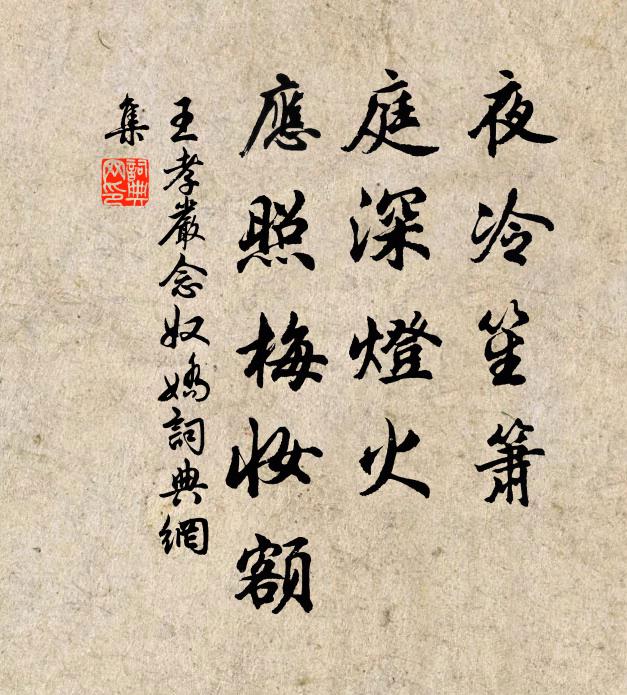 夜冷笙簫
庭深燈火
應照梅妝額
王孝嚴念奴嬌詞典網
集
詞典
网印